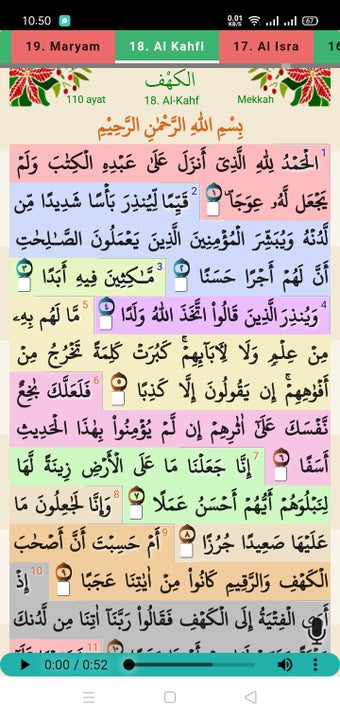 10.50 0.01 KB/S 67
19. Maryam 18. Al Kahfi 17. Al Isra
الكهف
110 ayat 18. Al-Kahf Mekkah
بِسْمِ اللهِ الرَّحْمٰنِ الرَّحِيْمِ
1 اَلْحَمْدُ لِلّٰهِ الَّذِىْٓ اَنْزَلَ عَلٰى عَبْدِهِ الْكِتٰبَ وَلَمْ
يَجْعَل لَّهٗ عِوَجًا ۜ ١ 2 قَيِّمًا لِّيُنْذِرَ بَأْسًا شَدِيْدًا مِّنْ
لَّدُنْهُ وَيُبَشِّرَ الْمُؤْمِنِيْنَ الَّذِيْنَ يَعْمَلُوْنَ الصّٰلِحٰتِ
اَنَّ لَهُمْ اَجْرًا حَسَنًا ٢ 3 مّٰكِثِيْنَ فِيْهِ اَبَدًا ٣
4 وَّيُنْذِرَ الَّذِيْنَ قَالُوا اتَّخَذَ اللّٰهُ وَلَدًا ٤ 5 مَا لَهُمْ بِهٖ
مِنْ عِلْمٍ وَّلَا لِاٰبَآئِهِمْ ۗ كَبُرَتْ كَلِمَةً تَخْرُجُ مِنْ
اَفْوَاهِهِمْ ۗ اِنْ يَّقُوْلُوْنَ اِلَّا كَذِبًا ٥ 6 فَلَعَلَّكَ بَاخِعٌ
نَّفْسَكَ عَلٰٓى اٰثَارِهِمْ اِنْ لَّمْ يُؤْمِنُوْا بِهٰذَا الْحَدِيْثِ
اَسَفًا ٦ 7 اِنَّا جَعَلْنَا مَا عَلَى الْاَرْضِ زِيْنَةً لَّهَا
لِنَبْلُوَهُمْ اَيُّهُمْ اَحْسَنُ عَمَلًا ٧ 8 وَاِنَّا لَجٰعِلُوْنَ مَا
عَلَيْهَا صَعِيْدًا جُرُزًا ٨ 9 اَمْ حَسِبْتَ اَنَّ اَصْحٰبَ
الْكَهْفِ وَالرَّقِيْمِ كَانُوْا مِنْ اٰيٰتِنَا عَجَبًا ٩ 10 اِذْ
اَوَى الْفِتْيَةُ اِلَى الْكَهْفِ فَقَالُوْا رَبَّنَآ اٰتِنَا مِنْ لَّدُنْكَ
11
0:00 / 0:52